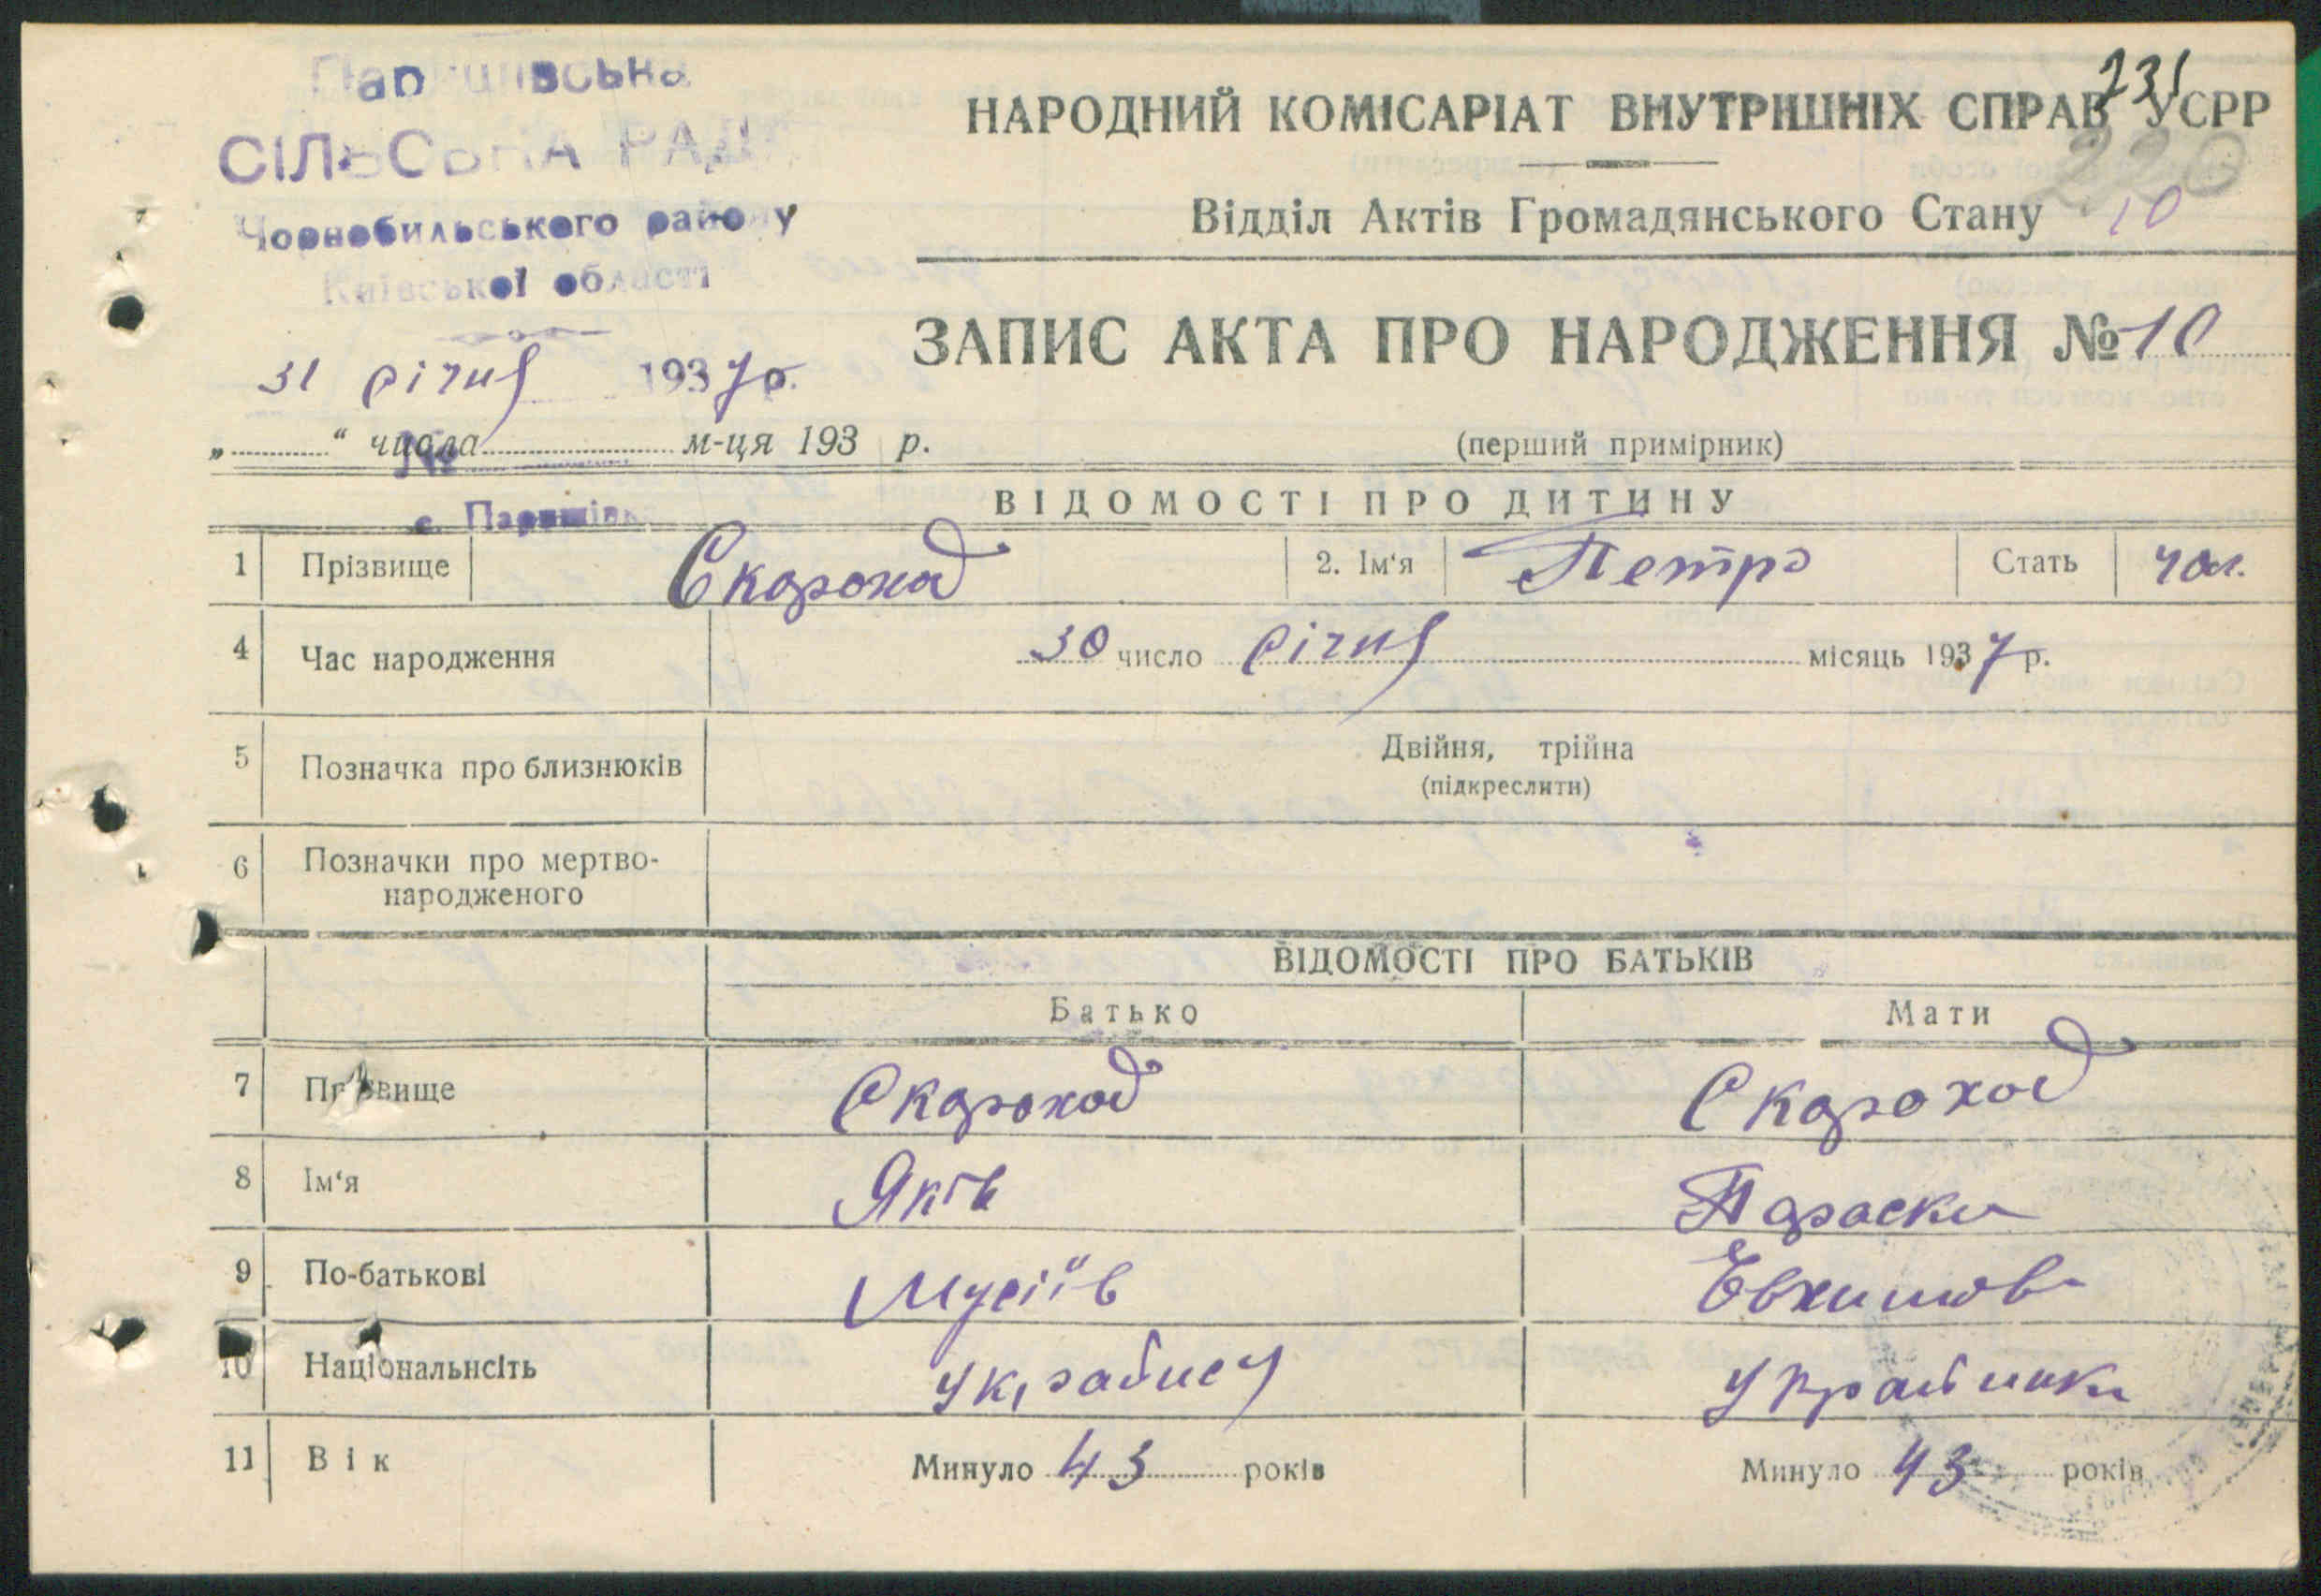 Паришівська
СІЛЬСЬКА РАДА
Чорнобильського району
Київської області
31 січня 1937 р.
„ “ числа м-ця 193 р.
№
с. Паришів
231
НАРОДНИЙ КОМІСАРІАТ ВНУТРІШНІХ СПРАВ УСРР
220
Відділ Актів Громадянського Стану 10
ЗАПИС АКТА ПРО НАРОДЖЕННЯ № 10
(перший примірник)
ВІДОМОСТІ ПРО ДИТИНУ
1 Прізвище Скороход 2. Ім‘я Петро Стать чол.
4 Час народження 30 число січня місяць 1937 р.
5 Позначка про близнюків Двійня, трійна
(підкреслити)
6 Позначки про мертво-
народженого
ВІДОМОСТІ ПРО БАТЬКІВ
Батько Мати
7 Прізвище Скороход Скороход
8 Ім‘я Яків Параска
9 По-батькові Мусіїв Евхимов
10 Національнсіть українец Українка
11 Вік Минуло 43 років Минуло 43 років